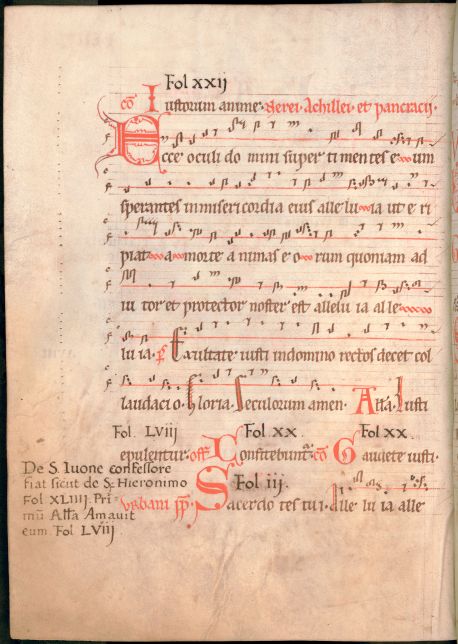 Fol xxij
cō Iustorum anime. Nerei. Achillei. et pancracij.
Ecce oculi do mini super ti men tes e um
sperantes in miseri cordia eius alle lu ia ut e ri
piat a morte a nimas e o rum quoniam ad
iu tor et protector noster est allelu ia al le
lu ia. ps Exultate iusti in domino rectos decet col
laudaci o. Gloria. Seculorum amen. Alta. Iusti
Fol. LViij Fol xx. Fol xx.
epulentur. off Confitebunt. cō Gaudete iusti.
De S. Iuone confessore
fiat sicut de S. Hieronimo
Fol XLIIIJ. Pri-
mū Alta Amauit
eum. Fol LViij.
Fol iij.
Vrbani pp. Sacerdo tes tu i. Alle lu ia alle